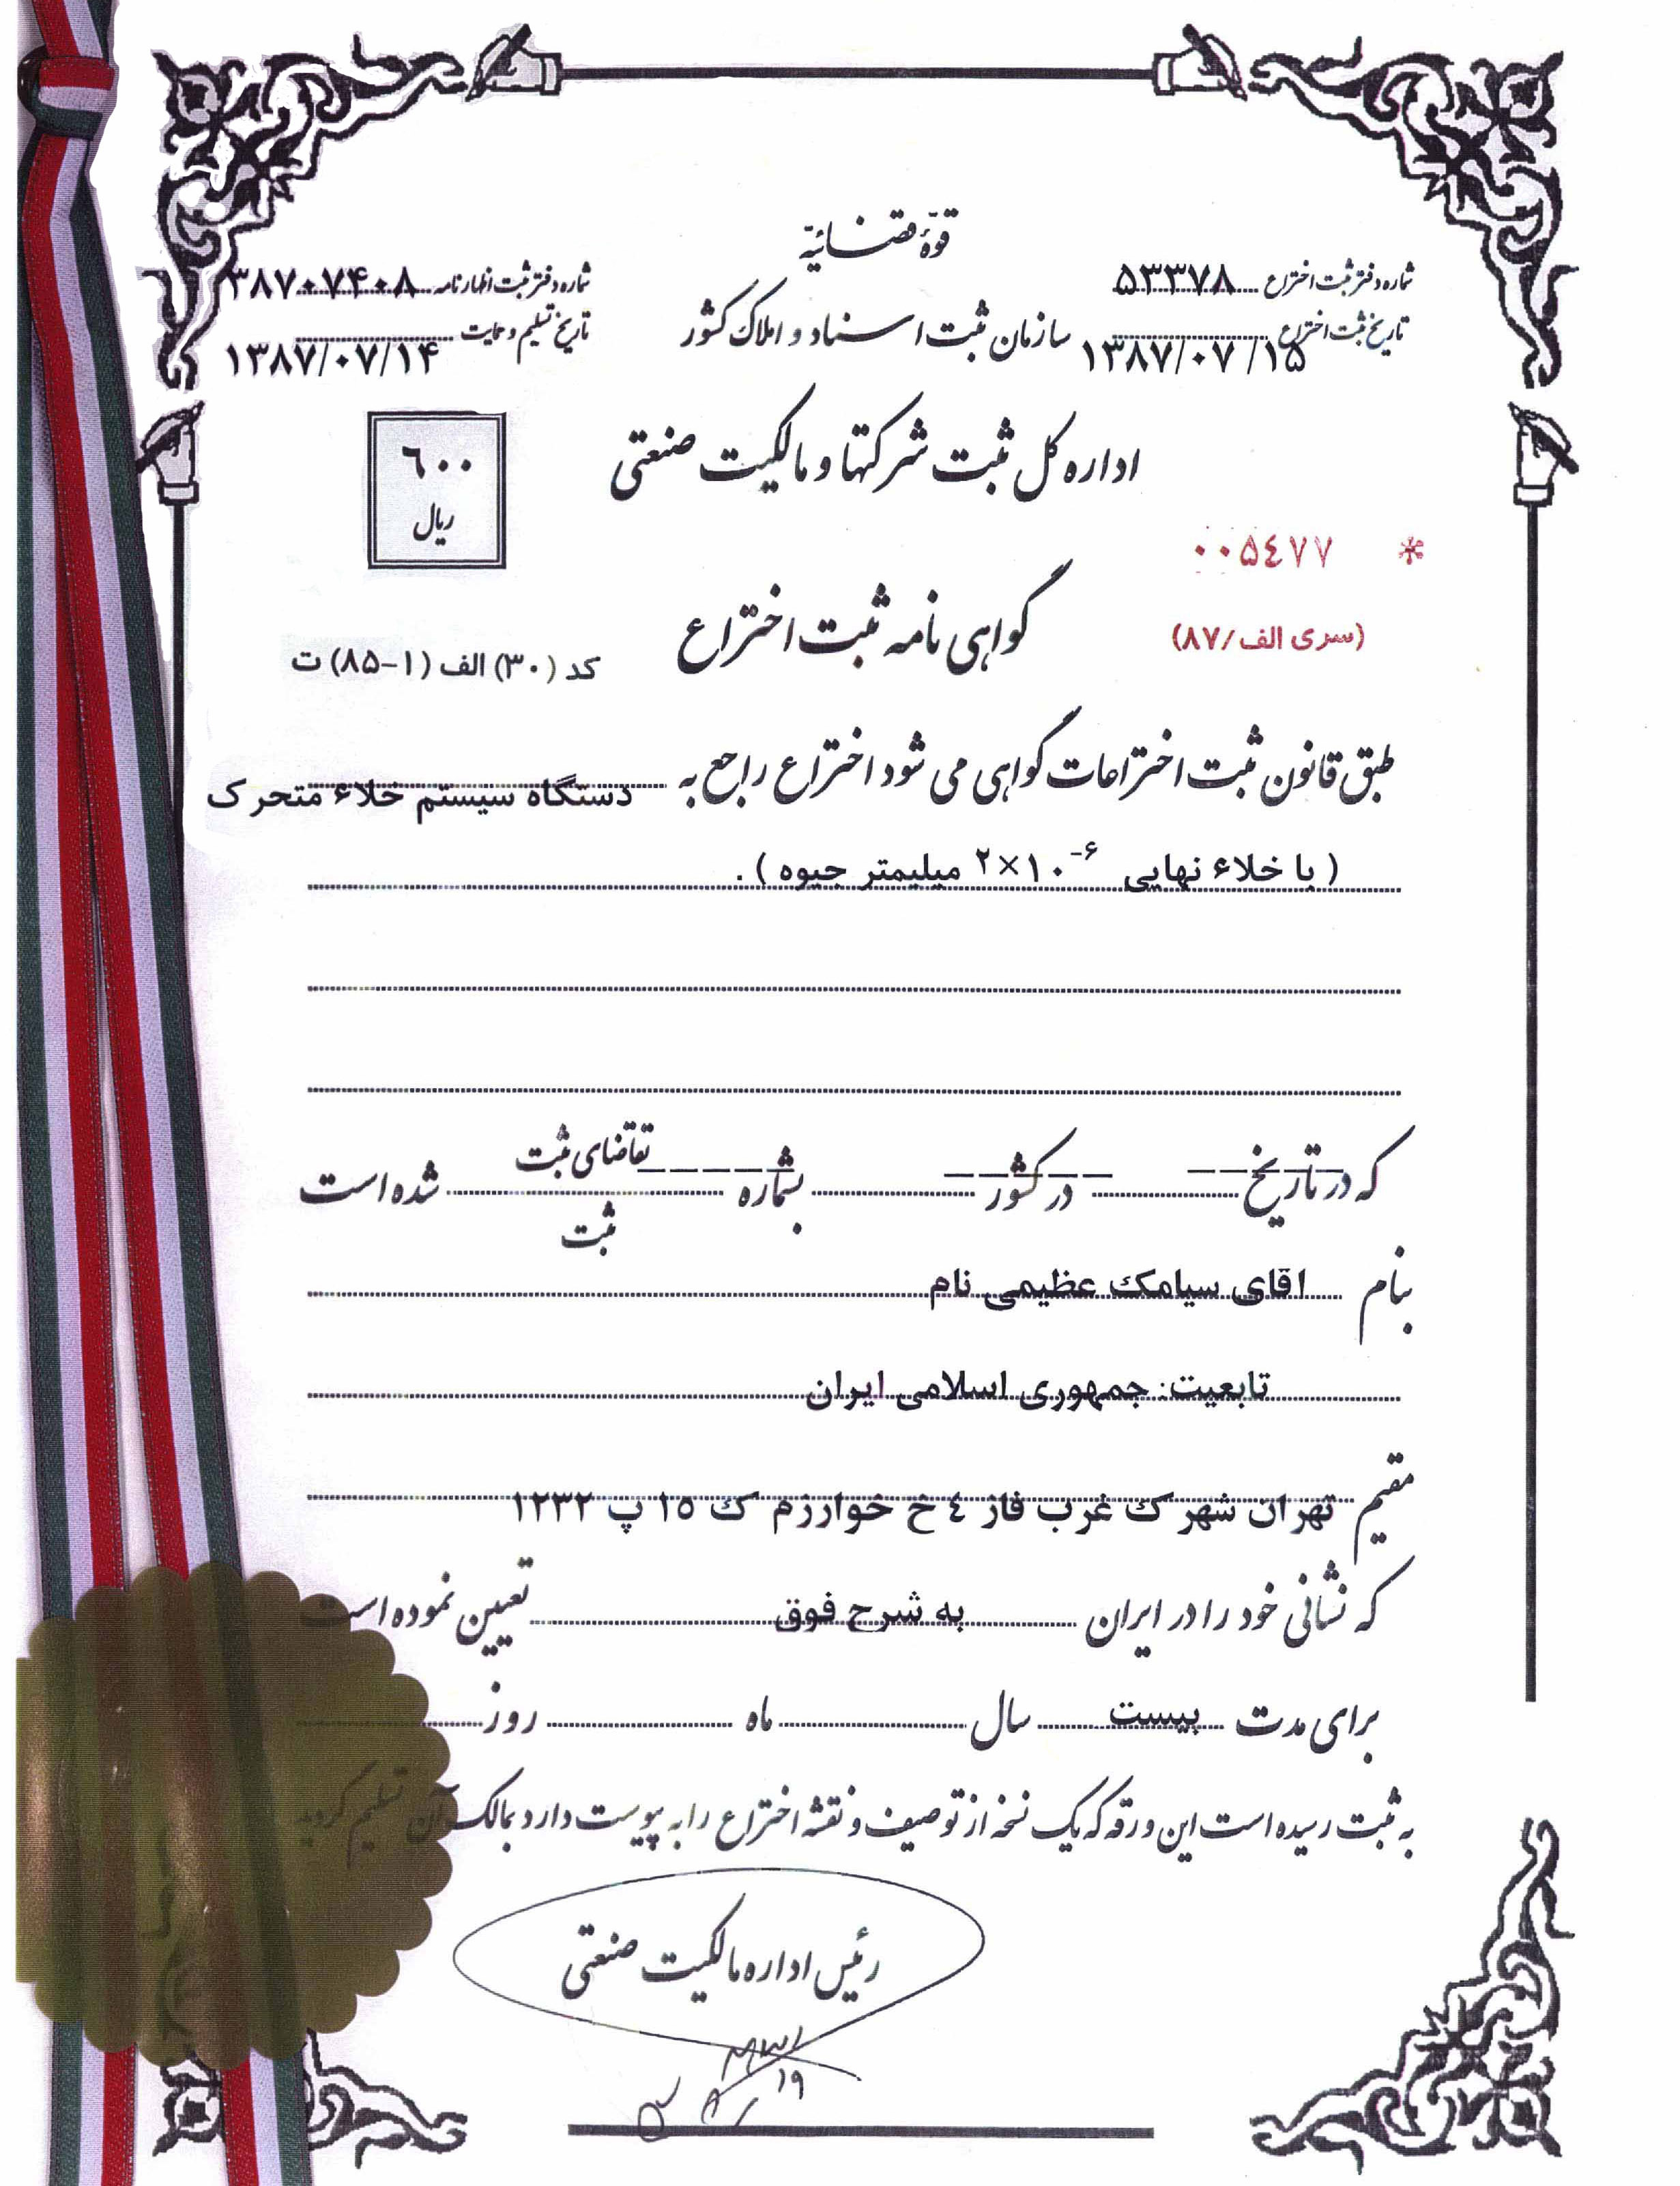 قوهٔ قضائیّه
شماره دفتر ثبت اختراع ۵۳۳۷۸
سازمان ثبت اسناد و املاک کشور
تاریخ ثبت اختراع ۱۳۸۷/۰۷/۱۵
شماره دفتر ثبت اظهارنامه ۳۸۷۰۷۴۰۸
تاریخ تسلیم و حمایت ۱۳۸۷/۰۷/۱۴
اداره کل ثبت شرکتها و مالکیت صنعتی
۶۰۰
ریال
* ۰۰۵٤۷۷
(سری الف/۸۷)
گواهی نامه ثبت اختراع
کد (۳۰) الف (۱-۸۵) ت
طبق قانون ثبت اختراعات گواهی می شود اختراع راجع به دستگاه سیستم خلاء متحرک
( با خلاء نهایی ۲×۱۰⁻۶ میلیمتر جیوه ) .
که در تاریخ در کشور بشماره تقاضای ثبت شده است
ثبت
بنام اقای سیامک عظیمی نام
تابعیت: جمهوری اسلامی ایران
مقیم تهران شهرک غرب فاز ٤ خ خوارزم ک ۱۵ پ ۱۲۳۲
که نشانی خود را در ایران به شرح فوق تعیین نموده است
برای مدت بیست سال ماه روز
به ثبت رسیده است این ورقه که یک نسخه از توصیف و نقشه اختراع را به پیوست دارد بمالک آن تسلیم گردید
رئیس اداره مالکیت صنعتی